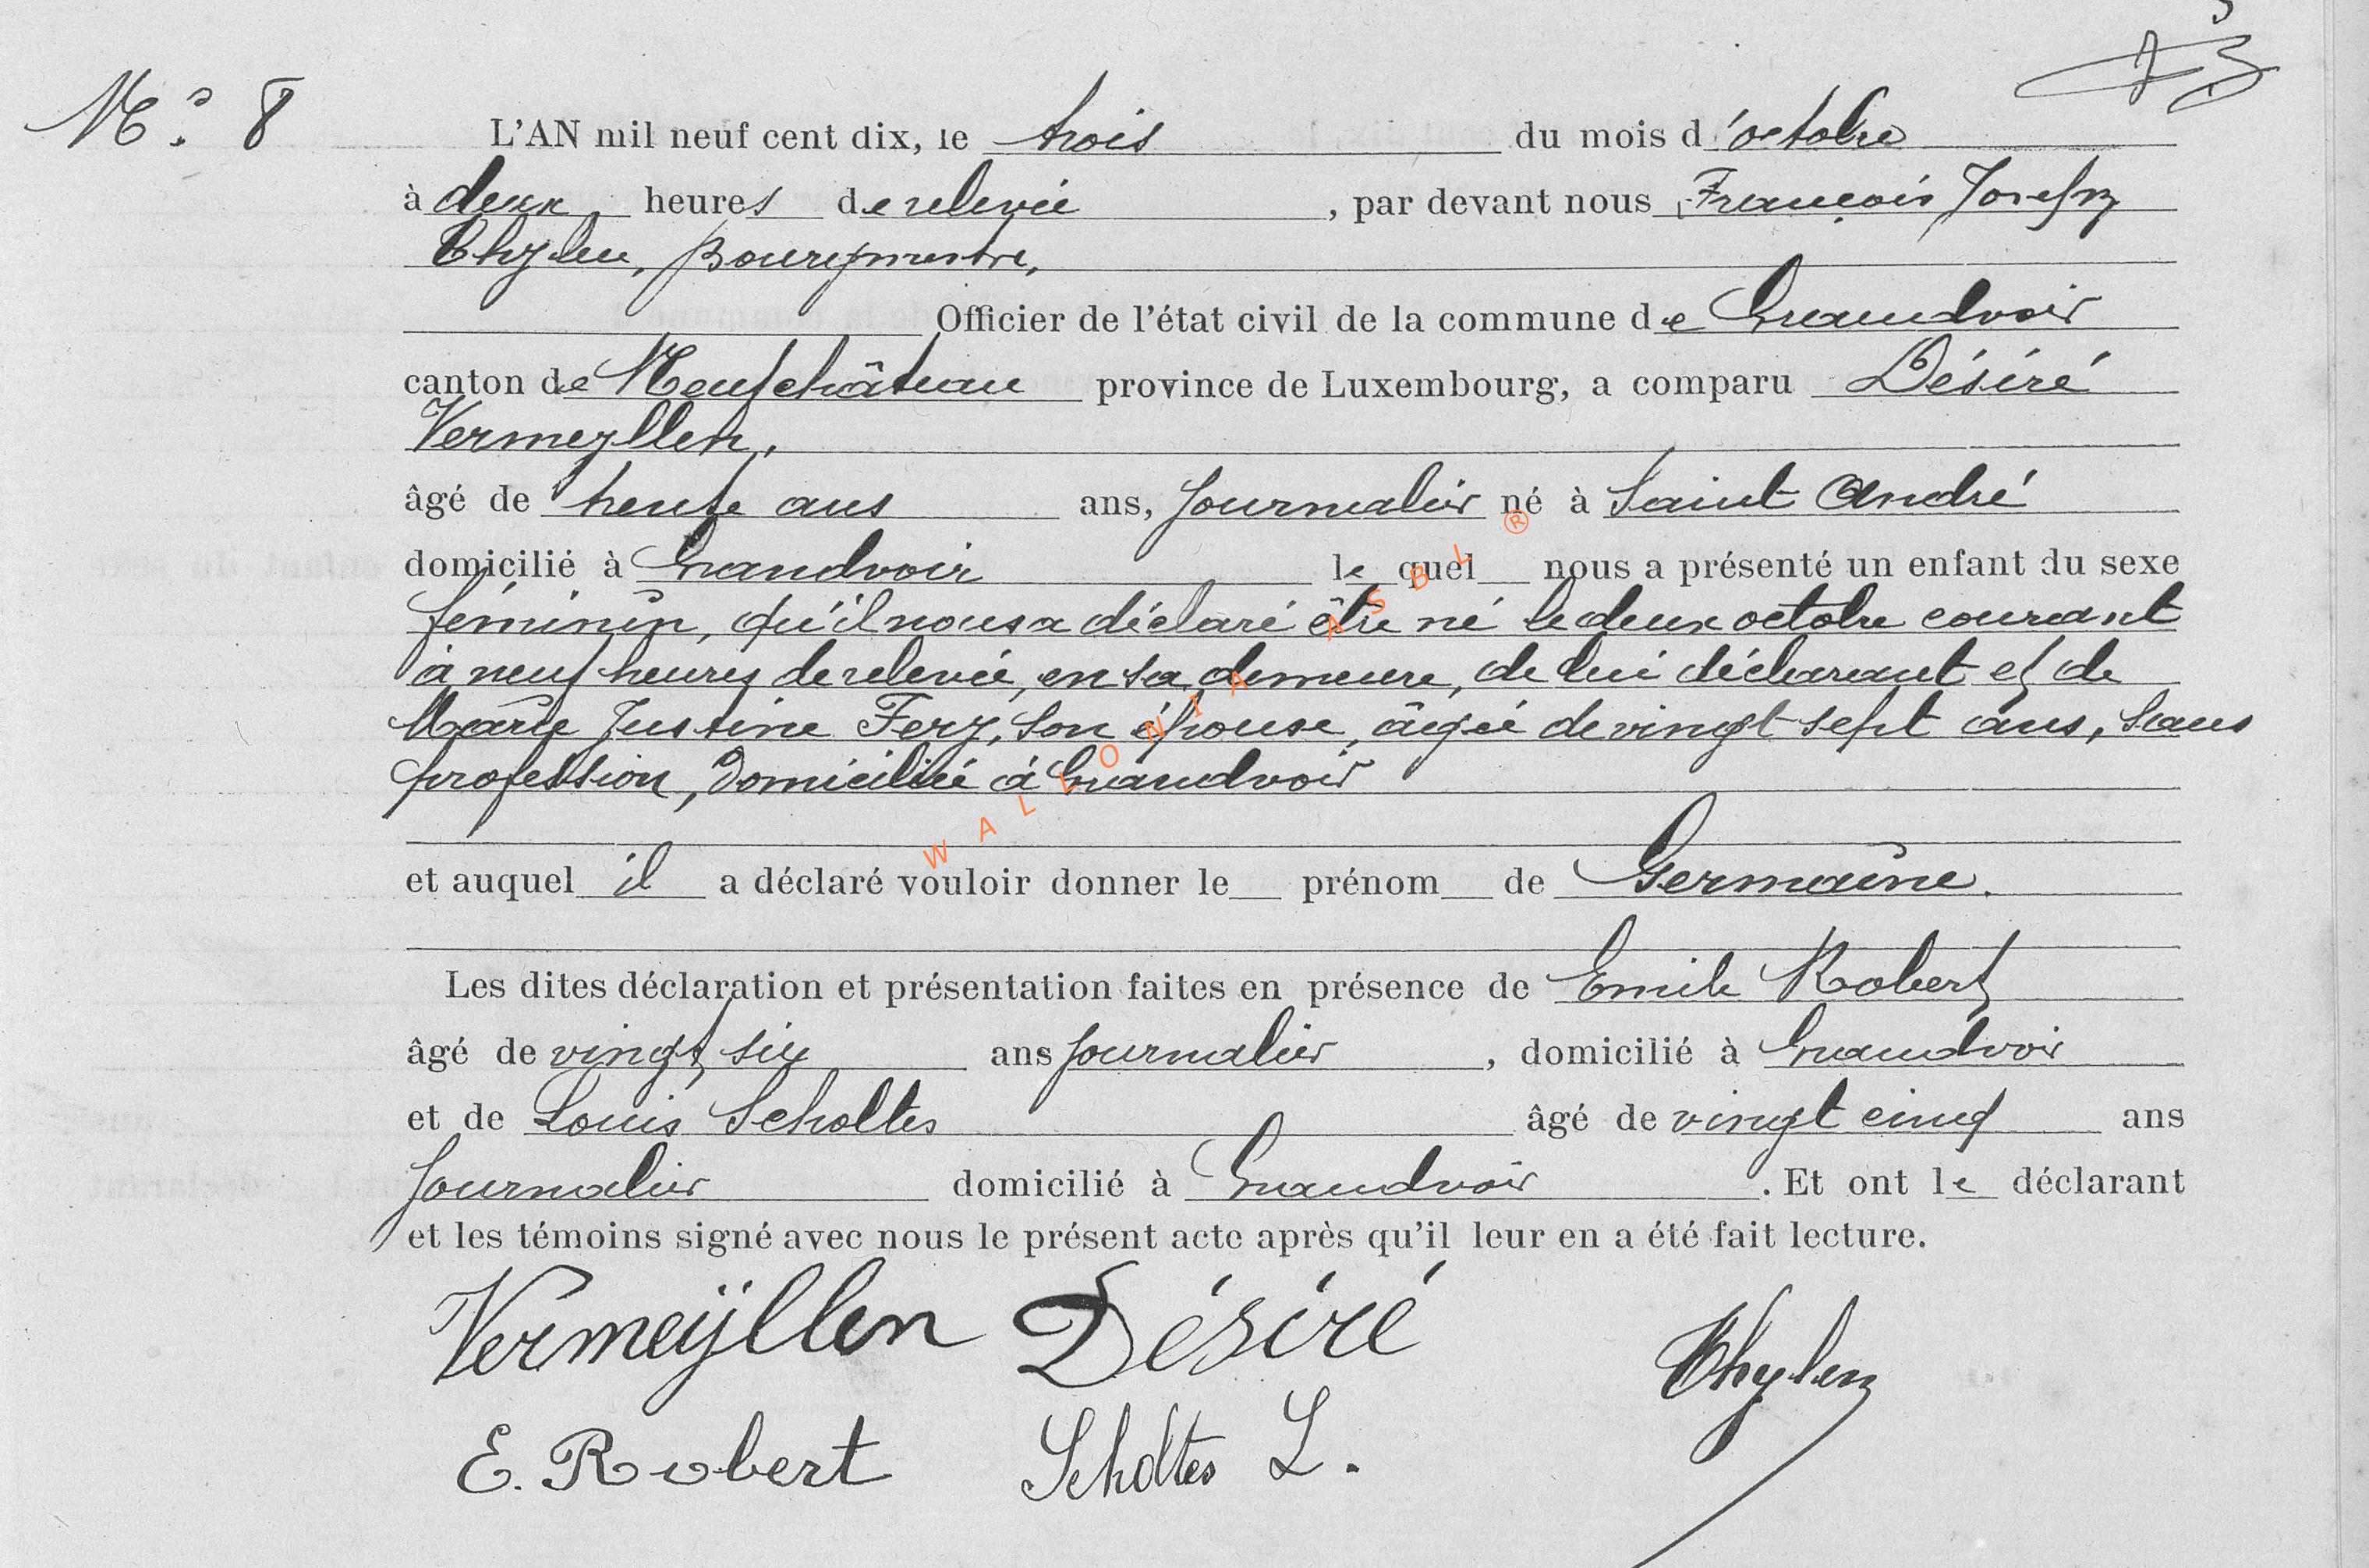 N° 8
L'AN mil neuf cent dix, le trois du mois d'octobre
à deux heures de relevée, par devant nous, François Joseph
Thylen, Bourgmestre,
Officier de l'état civil de la commune de Grandvoir
canton de Neufchâteau province de Luxembourg, a comparu Désiré
Vermeyllen,
âgé de trente ans ans, journalier né à Saint André
domicilié à Grandvoir lequel nous a présenté un enfant du sexe
féminin, qu'il nous a déclaré être né le deux octobre courant
à neuf heures de relevée, en sa demeure, de lui déclarant et de
Marie Justine Fery, son épouse, âgée de vingt sept ans, sans
profession, domiciliée à Grandvoir
et auquel il a déclaré vouloir donner le prénom de Germaine.
Les dites déclaration et présentation faites en présence de Emile Robert
âgé de vingt six ans journalier, domicilié à Grandvoir
et de Louis Scholtes âgé de vingt cinq ans
journalier domicilié à Grandvoir. Et ont le déclarant
et les témoins signé avec nous le présent acte après qu'il leur en a été fait lecture.
Vermeÿllen Désiré
Thylen
E. Robert Scholtes L.
WALLONIA ASBL ®